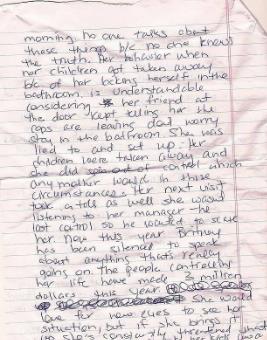 morning. No one talks about
these things b/c no one knows
the truth. Her behavior when
her children got taken away
b/c of her locking herself in the
bathroom is understandable
considering her friend at
the door kept telling her the
cops are leaving don't worry
stay in the bathroom. She was
lied to and set up. Her
children were taken away and
she did out of control which
any mother would in those
circumstances. Her next visit
took a toll as well she wasn't
listening to her manager the
last control so he wanted to
her. Now this year Britney
has been silenced to speak
about anything that's really
going on. The people controlling
her life have made 3 million
dollars this year. She would
love for new eyes to see her
situation, but if she brings
she's constantly threatened